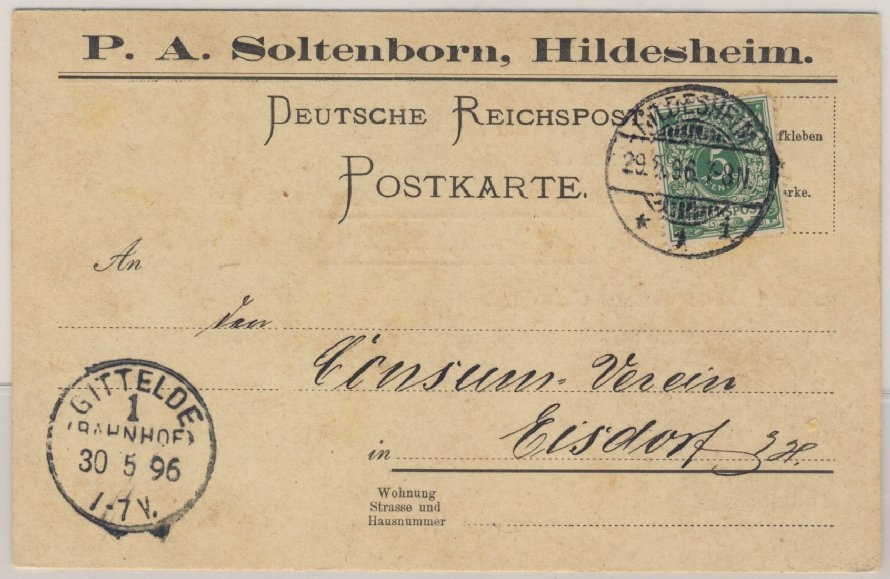 P. A. Soltenborn, Hildesheim.
DEUTSCHE REICHSPOST
POSTKARTE.
HILDESHEIM
29. 5. 96. 7-8 N.
* 1 1
5
fkleben
arke.
An
den
Consum-Verein
in Eisdorf
GITTELDE
1
(BAHNHOF)
30 5 96
7-7 N.
Wohnung
Strasse und
Hausnummer